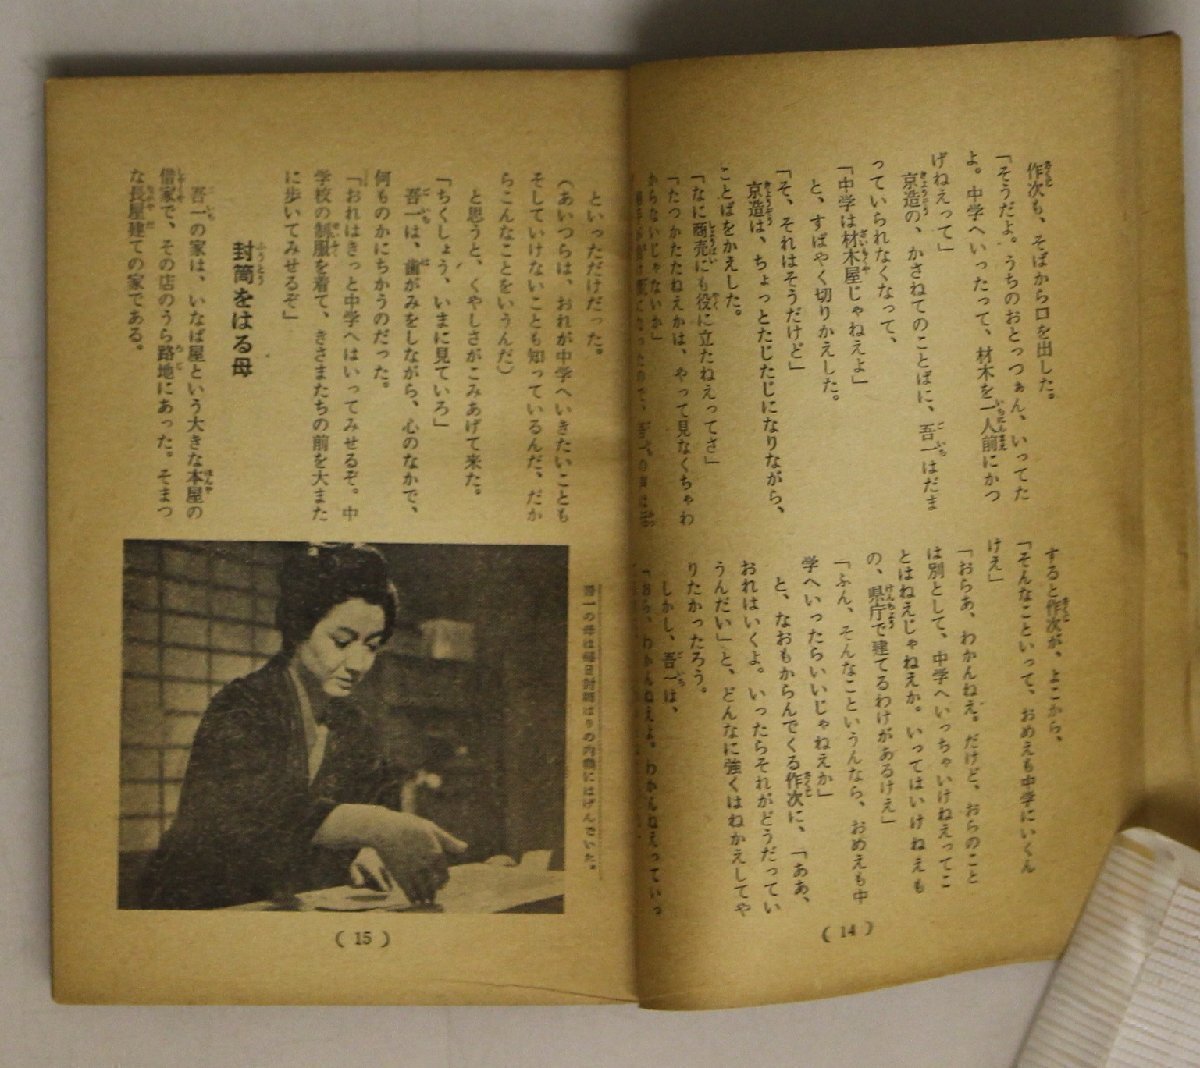 作次も、そばから口を出した。
「そうだよ。うちのおとっつぁん、いってた
よ。中学へいったって、材木を一人前にかつ
げねえって」
京造の、かさねてのことばに、吾一はだま
っていられなくなって、
「中学は材木屋じゃねえよ」
と、すばやく切りかえした。
「そ、それはそうだけど」
京造は、ちょっとたじたじになりながら、
ことばをかえした。
「なに商売にも役に立たねえってさ」
「たつかたたねえかは、やって見なくちゃわ
からないじゃないか」
すると作次が、よこから、
「そんなこといって、おめえも中学にいくん
けえ」
「おらあ、わかんねえ。だけど、おらのこと
は別として、中学へいっちゃいけねえってこ
とはねえじゃねえか。いってはいけねえも
の、県庁で建てるわけがあるけえ」
「ふん、そんなこというんなら、おめえも中
学へいったらいいじゃねえか」
と、なおもからんでくる作次に、「ああ、
おれはいくよ。いったらそれがどうだってい
うんだい」と、どんなに強くはねかえしてや
りたかったろう。
しかし、吾一は、
「おら、わかんねえよ。わかんねえっていっ
(14)
といっただけだった。
(あいつらは、おれが中学へいきたいことも
そしていけないことも知っているんだ、だか
らこんなことをいうんだ)
と思うと、くやしさがこみあげて来た。
「ちくしょう、いまに見ていろ」
吾一は、歯がみをしながら、心のなかで、
何ものかにちかうのだった。
「おれはきっと中学へはいってみせるぞ。中
学校の制服を着て、きさまたちの前を大また
に歩いてみせるぞ」
封筒をはる母
吾一の家は、いなば屋という大きな本屋の
借家で、その店のうら路地にあった。そまつ
な長屋建ての家である。
吾一の母は毎日封筒はりの内職にはげんでいた。
(15)